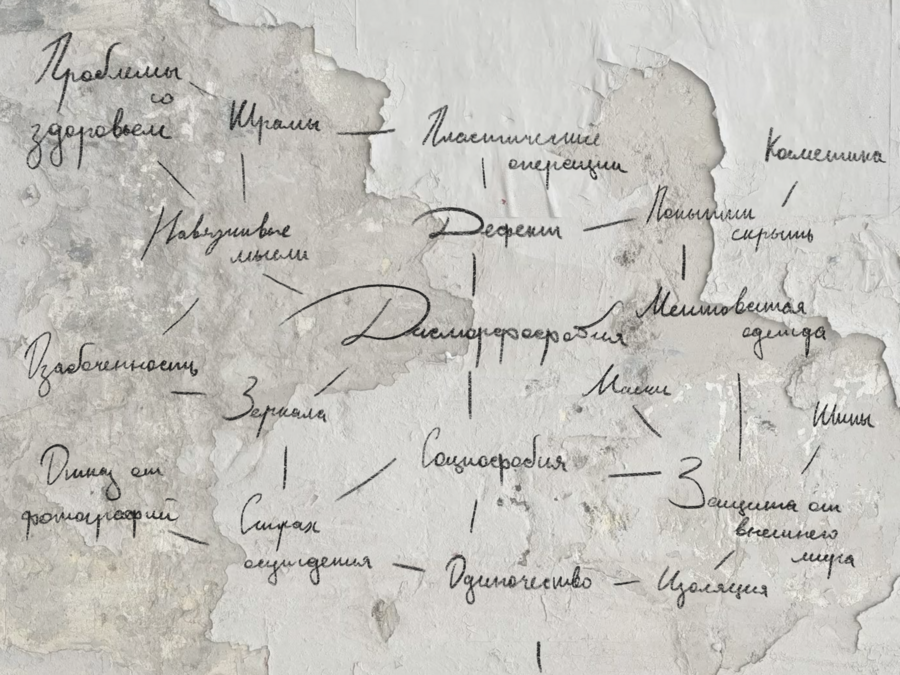 Проблемы
со
здоровьем
Шрамы
Пластические
операции
Косметика
Навязчивые
мысли
Дефекты
Попытки
скрыть
Дисморфофобия
Мешковатая
одежда
Озабоченность
Зеркала
Маски
Шипы
Отказ от
фотографий
Страх
осуждения
Социофобия
Защита от
внешнего
мира
Одиночество
Изоляция